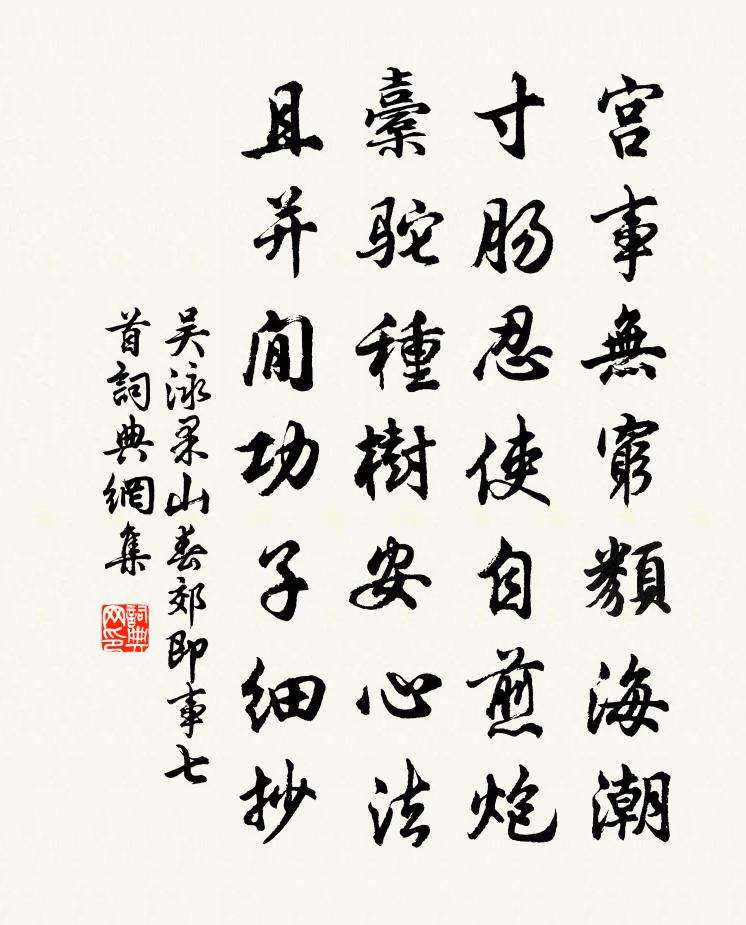 宫事無窮類海潮
寸腸忍使自煎炮
橐駝種樹安心法
且并閒功子細抄
吴泳果山春郊即事七
首詞典網集
詞典网印